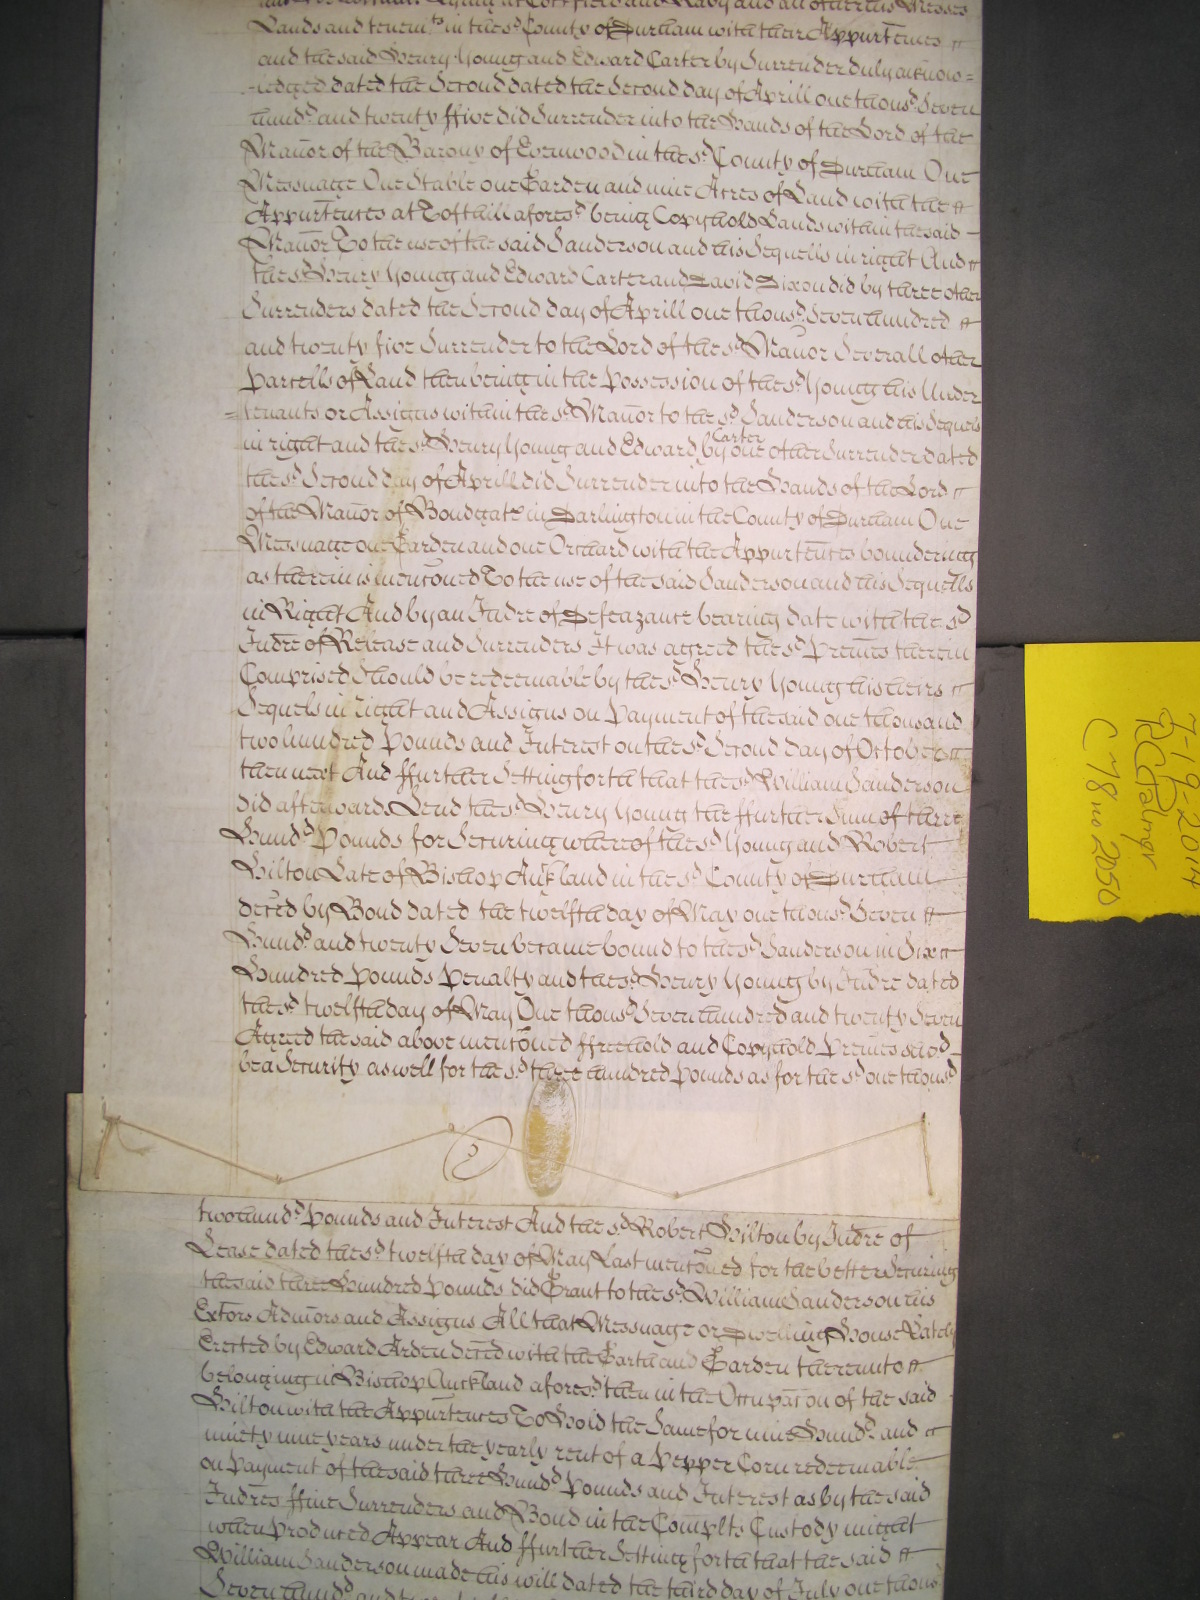 Lying at Cockfield and Raby and all other his Messes
Lands and tenemts in the sd County of Durham with their Appurtences
and the said Henry Young and Edward Carter by Surrender duly acknow=
=ledged dated the Second dated the Second day of Aprill one thousd Seven
hundd and twenty ffive did Surrender into the Hands of the Lord of the
Manor of the Barony of Evenwood in the sd County of Durham One
Messuage One Stable one Garden and nine Acres of Land with the
Appurtences at Tofthill aforesd being Copyhold Lands within the said
Manor To the use of the said Sanderson and his Sequells in right And
the sd Henry Young and Edward Carter and David Dixon did by three other
Surrenders dated the Second day of Aprill one thousd Seven hundred
and twenty five Surrender to the Lord of the sd Manor Severall other
Parcells of Land then being in the Possession of the sd Young his Under
=tenants or Assigns within the sd Manor to the sd Sanderson and his Sequels
in right and the sd Henry Young and Edward Carter by one other Surrender dated
the sd Second day of Aprill did Surrender into the Hands of the Lord
of the Manor of Bondgate in Darlington in the County of Durham One
Messuage one Garden and one Orchard with the Appurtences boundering
as therein is mentoned To the use of the said Sanderson and his Sequells
in Right And by an Indre of Defeazance bearing date with the sd
Indre of Release and Surrenders It was agreed the sd Premes therein
Comprised Should be redeemable by the sd Henry Young his heirs
Sequels in right and Assigns on Payment of the said one thousand
two hundred Pounds and Interest on the sd Second day of October
then next And ffurther Setting forth that the sd William Sanderson
did afterwards Lend the sd Henry Young the ffurther Sum of three
Hundd Pounds for Securing whereof the sd Young and Robert
Hilton Late of Bishop Auckland in the sd County of Durham
deced by Bond dated the twelfth day of May one thousd Seven
Hundd and twenty Seven became bound to the sd Sanderson in Six
Hundred Pounds Penalty and the sd Henry Young by Indre dated
the sd twelfth day of May One thousd Seven hundred and twenty Seven
Agreed the said above mentoned ffreehold and Copyhold Premes shod
be a Security as well for the sd three hundred Pounds as for the sd one thousd
2
two hundd Pounds and Interest And the sd Robert Hilton by Indre of
Lease dated the sd twelfth day of May Last mentoned for the better Securing
the said three Hundred Pounds did Grant to the sd William Sanderson his
Extors Admors and Assigns All that Messuage or Dwelling House Lately
Erected by Edward Arden deced with the Garth and Garden thereunto
belonging in Bishop Auckland aforesd then in the Occupacon of the said
Hilton with the Appurtences To Hold the Same for nine Hundd and
ninety nine years under the yearly rent of a Pepper Corn redeemable
on Payment of the said three Hundd Pounds and Interest as by the said
Indres ffine Surrenders and Bond in the Complts Custody might
when Produced Appear And ffurther Setting forth that the said
William Sanderson made his will dated the third day of July one thous
Seven hundd and
7-19-2014
RCPalmer
C 78 no 2050